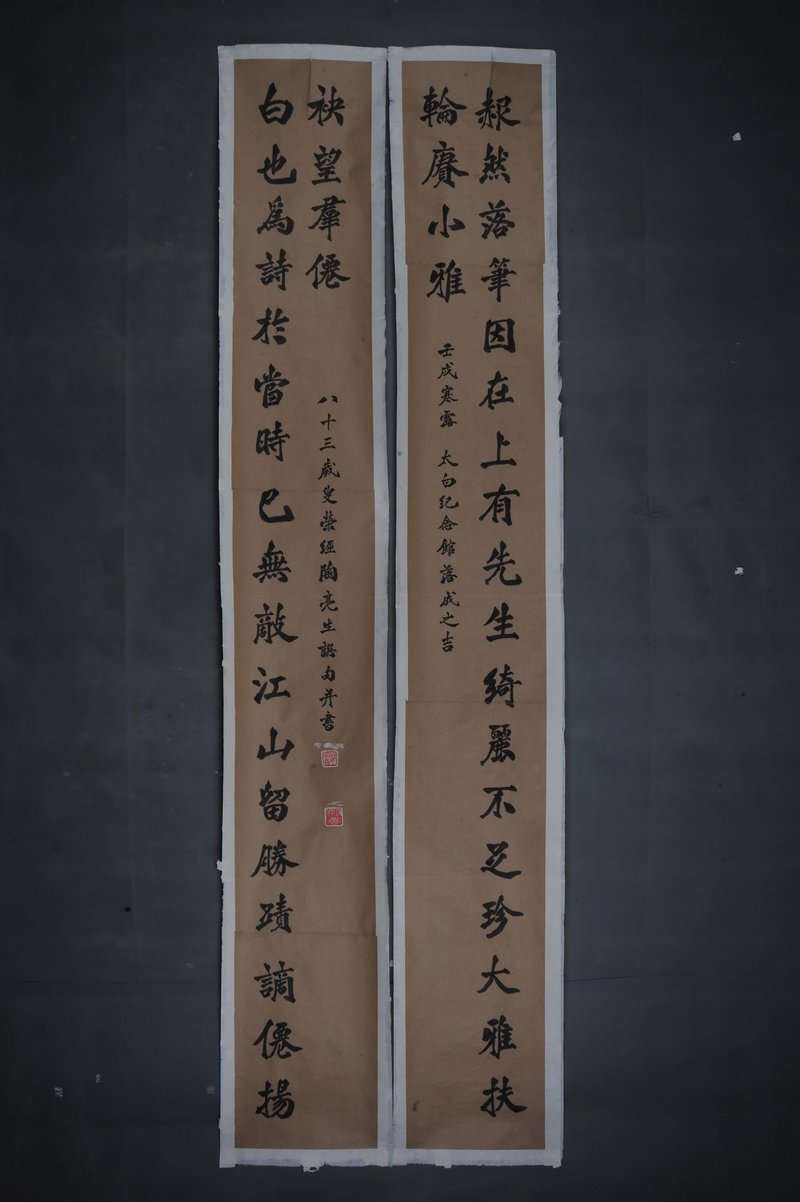 赧然落筆因在上有先生綺麗不足珍大雅扶
輪賡小雅
壬戌寒露 太白纪念館落成之吉
白也爲詩於當時已無敵江山留勝蹟謫僊揚
袂望羣僊
八十三歲叟榮經陶亮生譔句并書